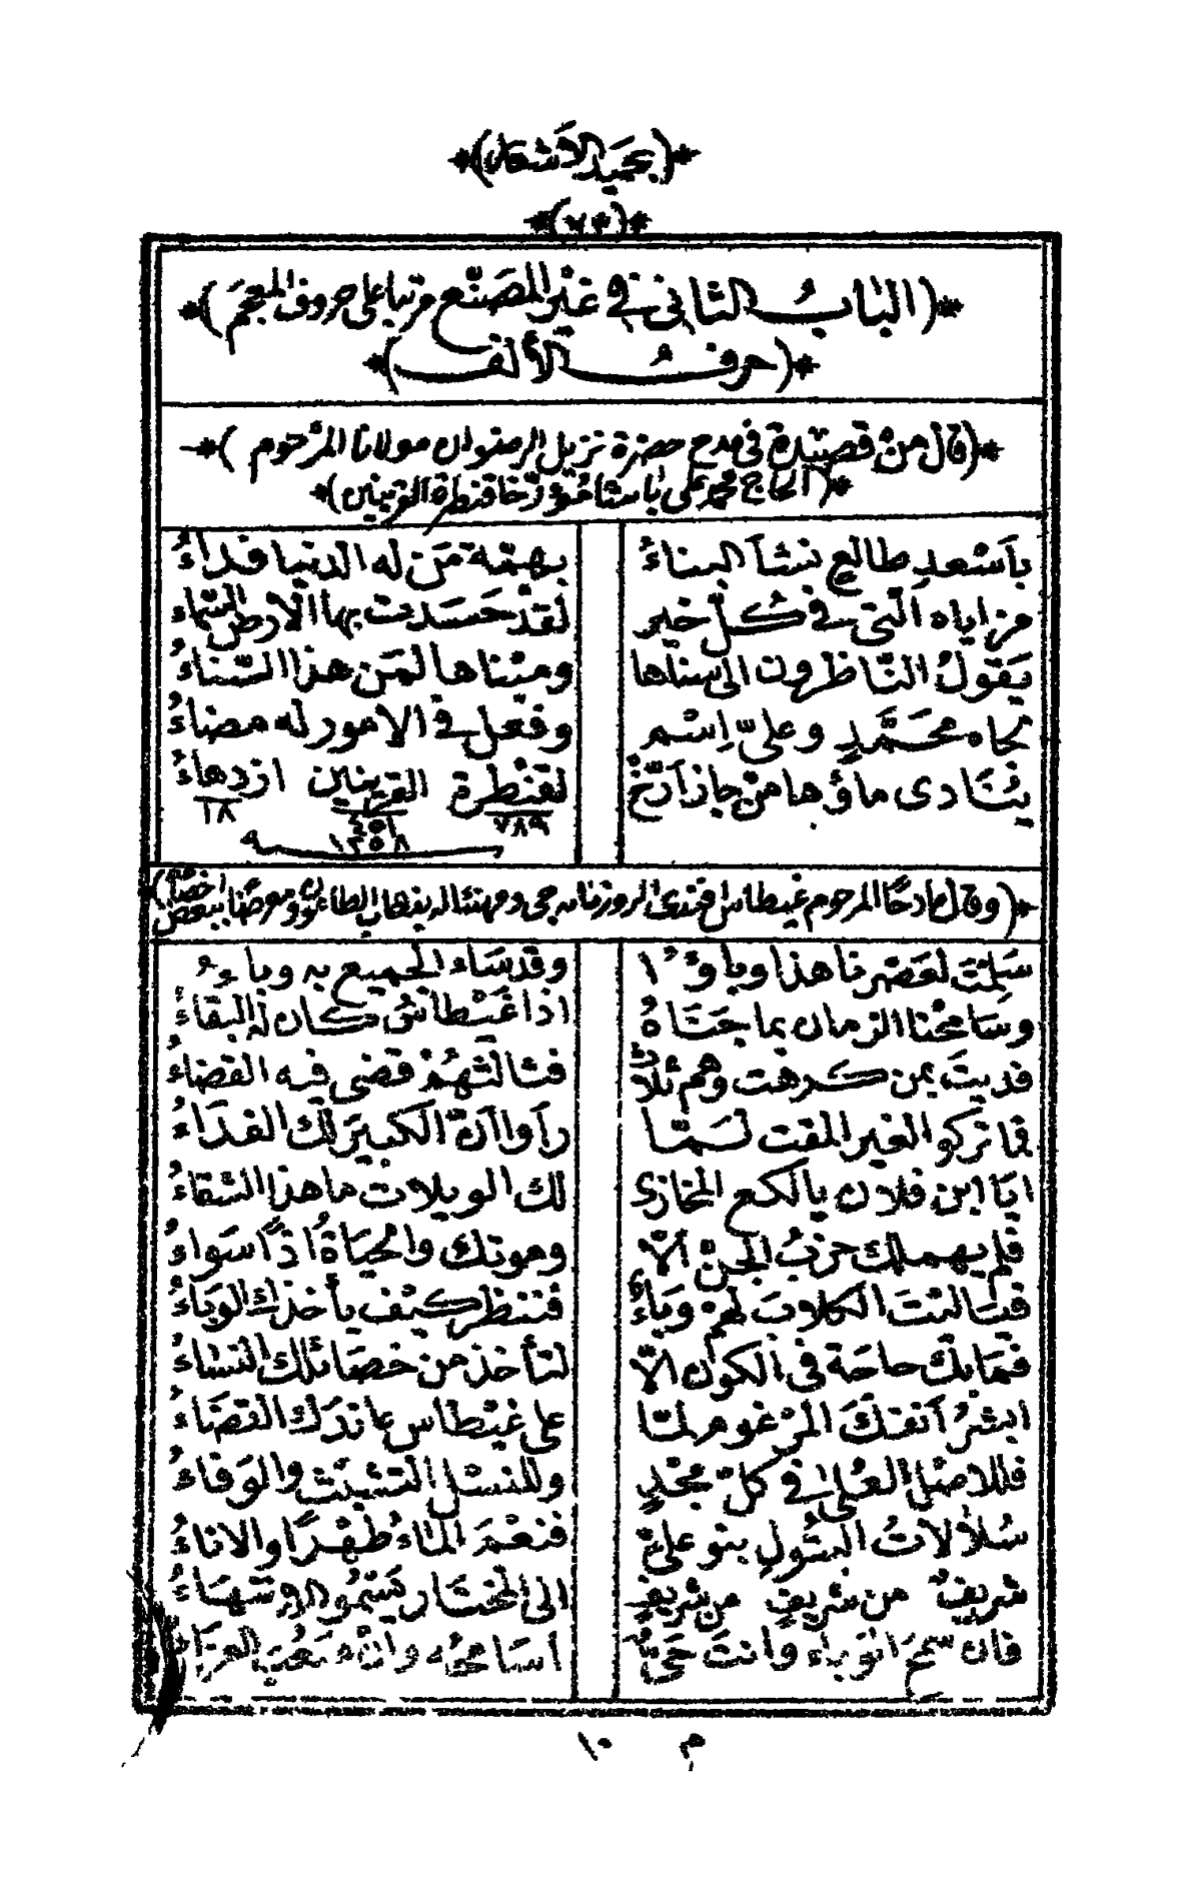 *(بحميد الأشعار)*
*(٧٣)*
*(البابُ الثاني في غير المصنع مرتبا على حروف المعجم)*
*(حرفُ الألف)*
*(قال من قصيدة في مدح حضرة نزيل الرضوان مولانا المرحوم)*
*(الحاج محمد على باشا مؤرخا قنطرة القرينين)*
بأسعدِ طالعٍ نشأ البناءُ بهمة مَن له الدنيا فداءُ
مزاياه التى في كلّ خير لقد حَسَدت بها الأرض السّماء
يَقولُ النّاظرون الى سناها ومبناها لمَن هذا السّناءُ
بجاه محَمَّدٍ وعلىّ اِسْم وفعل في الامور له مضاءُ
يُنَادى ماؤها من جاز اَرّخْ لقنْطرة القرينين ازدهاءُ
٧٨٩ ٤٥١ ١٨
١٢٥٨ سنه
*(وقال مادحًا المرحوم غيطاس افندى الروزنامه جى ومهنئا له بذهاب الطاعون ومعرضًا ببعض اخصّائه)*
سَلِمْتَ لعَصْرنا هذا وباؤُا وقد سَاء الجميع به وباءُ
وسَامحْنا الزمان بما جَنَاهُ اذا غَيْطاسُ كان له البقاءُ
فديتَ بمن كرهْت وهم ثلاثٌ فثالثهُمْ قضى فيه القضاءُ
فما تركو الغير المقت لَـمّـا رأوا اَنّ الكبيرَ لك الفداءُ
ايَا ابن فلان يالكع المخازى لك الويلات ما هذا الشقاءُ
فلم يهملك حزبُ الجنّ اَلّا وموتك والمحيَاةُ اذًا سَواءُ
فسَالمْتَ الكلابَ لهم وَباءٌ فتنظر كيْف يأخذك الوَبَاءُ
فمَا بك حاجة في الكون الّا لتأخذ من خصَائلك النساءُ
ابشرُ اَنفك المرْغوم لمّا على غيْطاس عاندَك القضَاءُ
فللاصْل العلىٰ في كلّ مجْدٍ وللنسْل التشبّث والوَفاءُ
سُلالاتُ البتُولِ بنو علىّ فنعْمَ الماءُ طهْرًا والاناءُ
شريفٌ من شريفٍ من شريفٍ الى المختَار يَسْمُو الاِنتهَاءُ
فان سمجَ الوباء وانتَ حَىٌّ